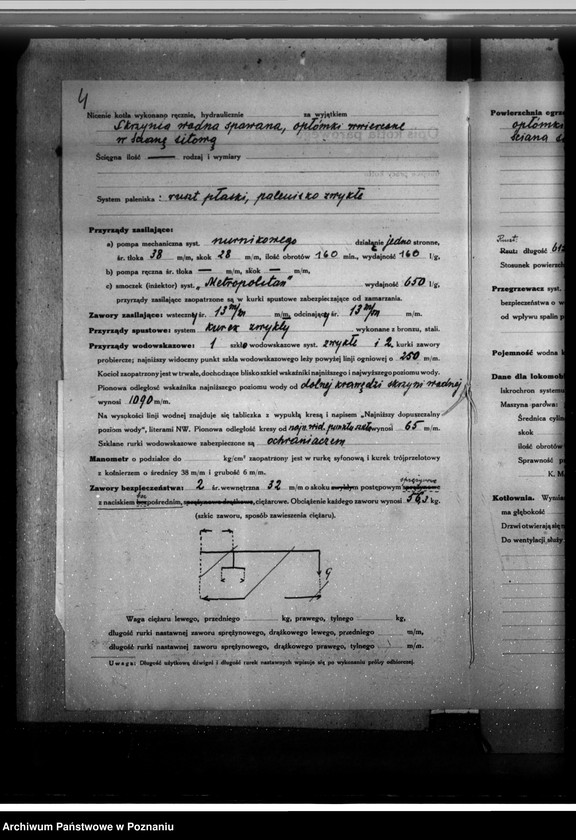 4
Nicenie kotła wykonano ręcznie, hydraulicznie za wyjątkiem
Skrzynia wodna spawana, opłomki wwiercone
w ścianę sitową
Ścięgna ilość — rodzaj i wymiary
System paleniska: ruszt płaski, palenisko zwykłe
Przyrządy zasilające:
a) pompa mechaniczna syst. nurnikowego działanie jedno stronne,
śr. tłoka 38 m/m, skok 28 m/m, ilość obrotów 160 min., wydajność 160 l/g,
b) pompa ręczna śr. tłoka — m/m, skok — m/m,
c) smoczek (inżektor) syst. „Metropolitan" wydajność 650 l/g,
przyrządy zasilające zaopatrzone są w kurki spustowe zabezpieczające od zamarzania.
Zawory zasilające: wsteczny śr. 13 m/m m/m, odcinający śr. 13 m/m m/m.
Przyrządy spustowe: system kurek zwykły wykonane z bronzu, stali.
Przyrządy wodowskazowe: 1 szkło wodowskazowe syst. zwykłe i 2 kurki zawory
probiercze; najniższy widoczny punkt szkła wodowskazowego leży powyżej linji ogniowej o 250 m/m.
Kocioł zaopatrzony jest w trwałe, dochodzące blisko szkieł wskaźniki najniższego i najwyższego poziomu wody.
Pionowa odległość wskaźnika najniższego poziomu wody od dolnej krawędzi skrzyni wodnej
wynosi 1090 m/m.
Na wysokości linji wodnej znajduje się tabliczka z wypukłą kresą i napisem „Najniższy dopuszczalny
poziom wody", literami NW. Pionowa odległość kresy od najn. wid. punktu szkła wynosi 65 m/m.
Szklane rurki wodowskazowe zabezpieczone są ochraniaczem
Manometr o podziałce do kg/cm² zaopatrzony jest w rurkę syfonową i kurek trójprzelotowy
z kołnierzem o średnicy 38 m/m i grubość 6 m/m.
Zawory bezpieczeństwa: 2 śr. wewnętrzna 32 m/m o skoku zwykłym postępowym
z naciskiem bezpośrednim, ciężarowe. Obciążenie każdego zaworu wynosi kg.
(szkic zaworu, sposób zawieszenia ciężaru).
q
Waga ciężaru lewego, przedniego kg, prawego, tylnego kg,
długość rurki nastawnej zaworu sprężynowego, drążkowego lewego, przedniego m/m,
długość rurki nastawnej zaworu sprężynowego, drążkowego prawego, tylnego m/m.
Uwaga: Długość użytkową dźwigni i długość rurek nastawnych wpisuje się po wykonaniu próby odbiorczej.
Powierzchnia ogrze
opłomki
ściana si
Ruszt:
Ruszt długość 612
Stosunek powierzch
Przegrzewacz syst.
bezpieczeństwa o w
od wpływu spalin p
Pojemność wodna k
Dane dla lokomob
Iskrochron systemu
Maszyna parowa:
Średnica cylin
skok
ilość obrotów
Sprawność p
K. M
Kotłownia. Wymia
ma głębokość
Drzwi otwierają się n
Do wentylacji służy
Archiwum Państwowe w Poznaniu